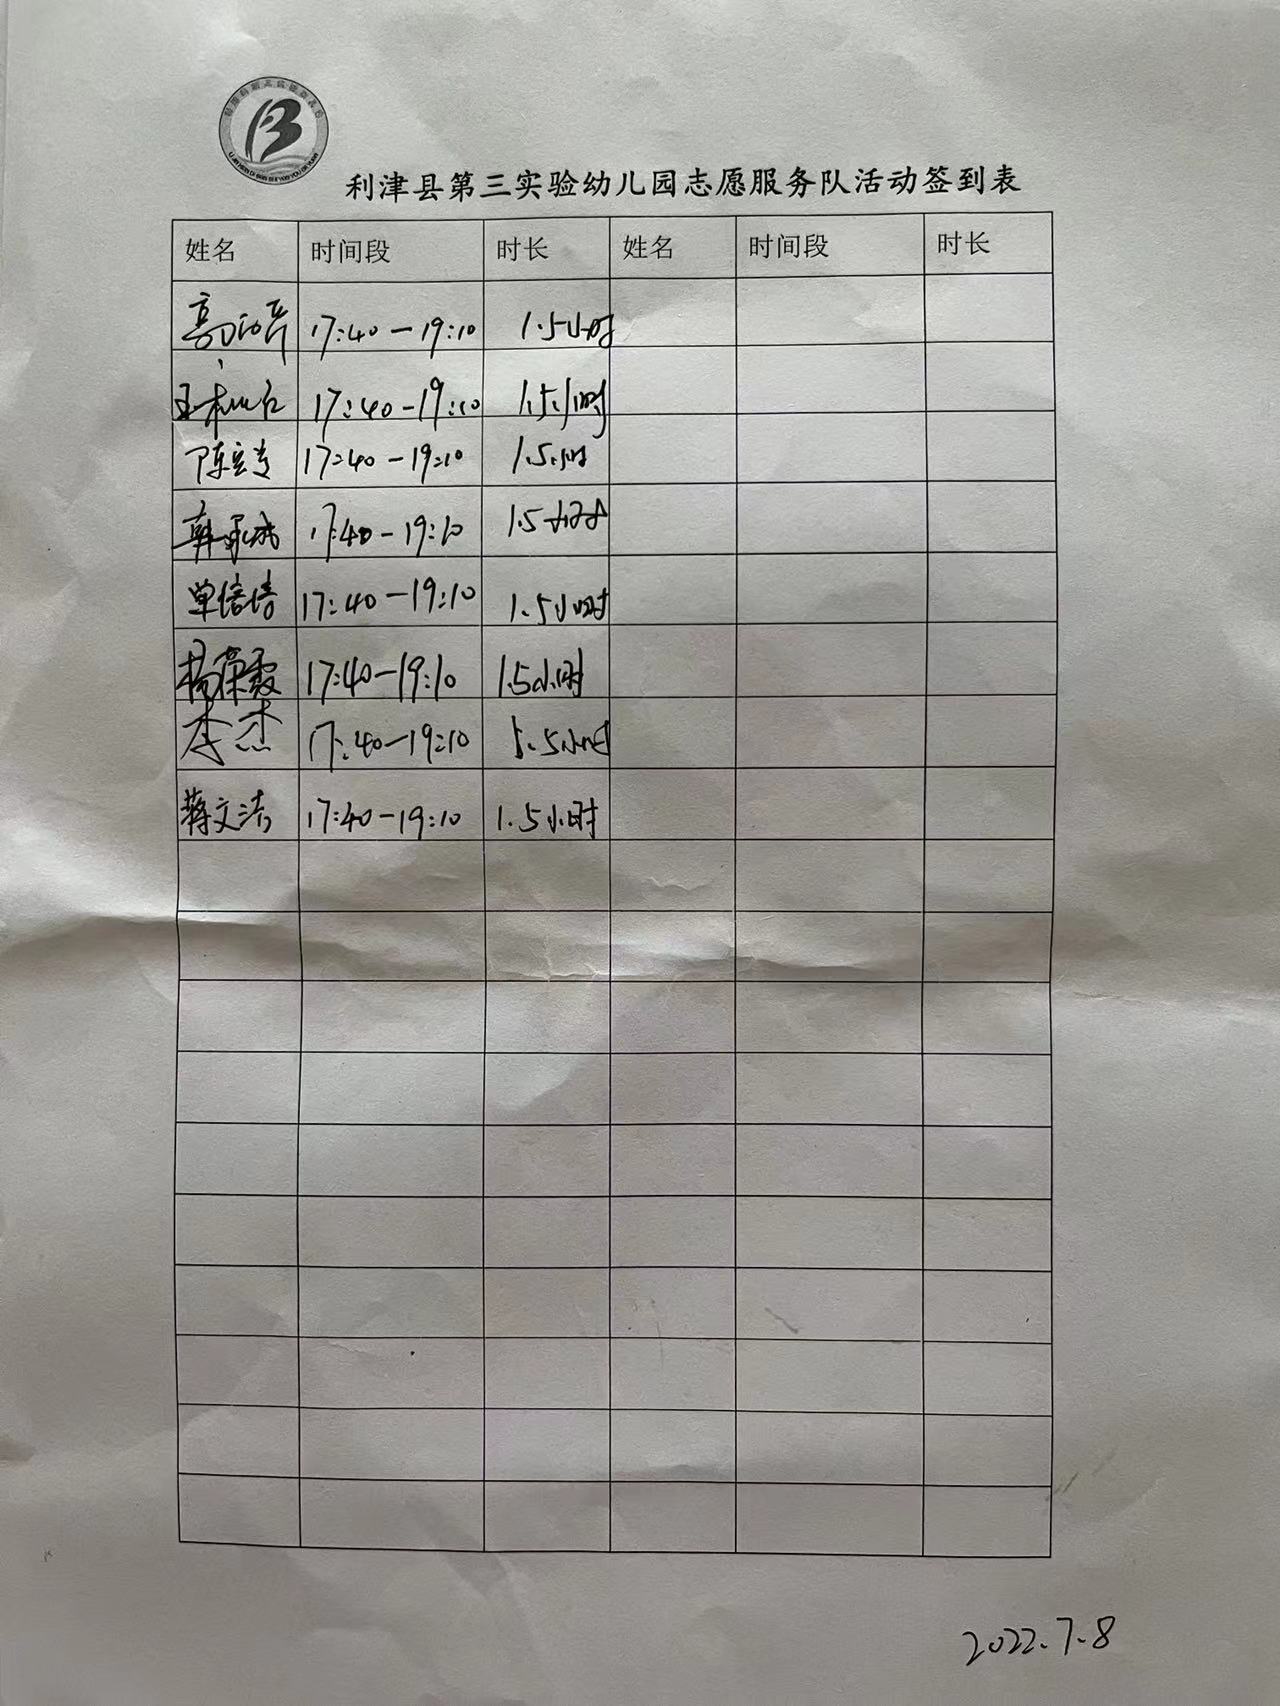 利津县第三实验幼儿园志愿服务队活动签到表
姓名 时间段 时长 姓名 时间段 时长
17:40-19:10 1.5小时
17:40-19:10 1.5小时
17:40-19:10 1.5小时
17:40-19:10 1.5小时
单倍倍 17:40-19:10 1.5小时
杨荣霞 17:40-19:10 1.5小时
李杰 17:40-19:10 1.5小时
蒋文洁 17:40-19:10 1.5小时
2022.7.8